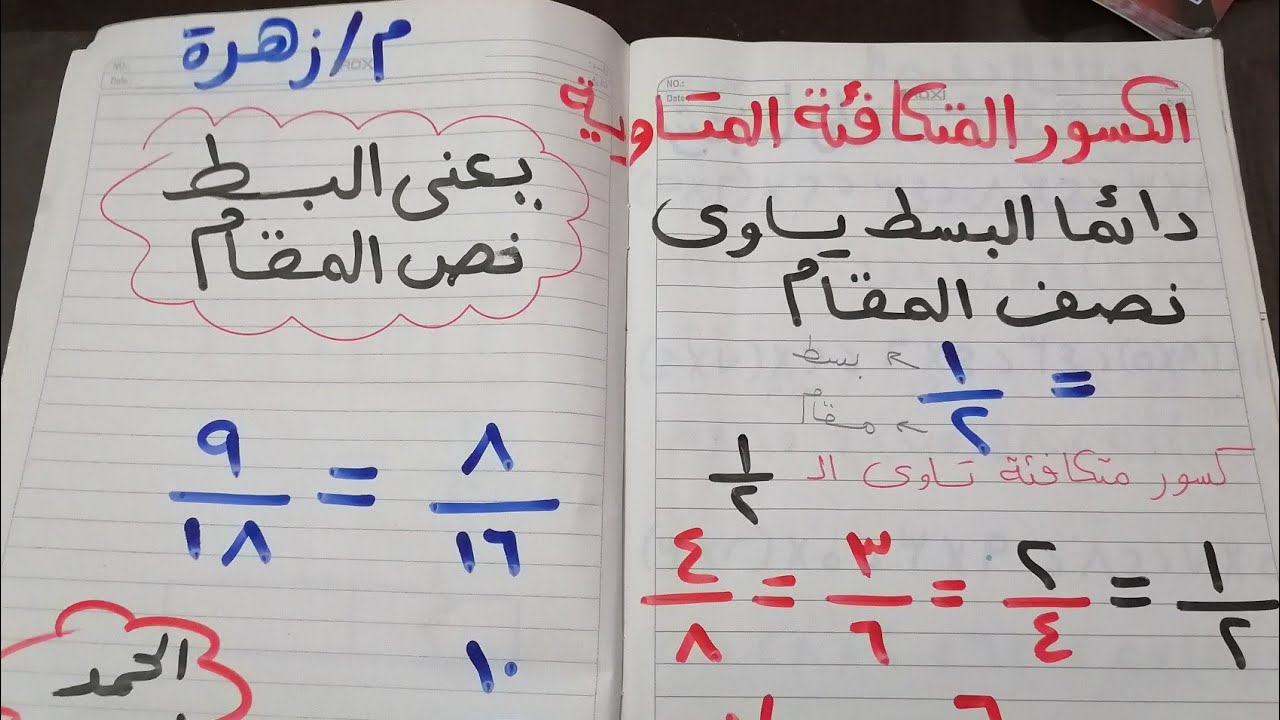 الكسور المتكافئة المتاوية
دائما البسط ياوى
نصف المقام
١/٢ =
← بسط
← مقام
كسور متكافئة تاوى الـ ١/٢
١/٢ = ٢/٤ = ٣/٦ = ٤/٨
م/زهرة
يعنى البسط
نص المقام
٨/١٦ = ٩/١٨
١٠
الحمد
NO.:
Date
Date